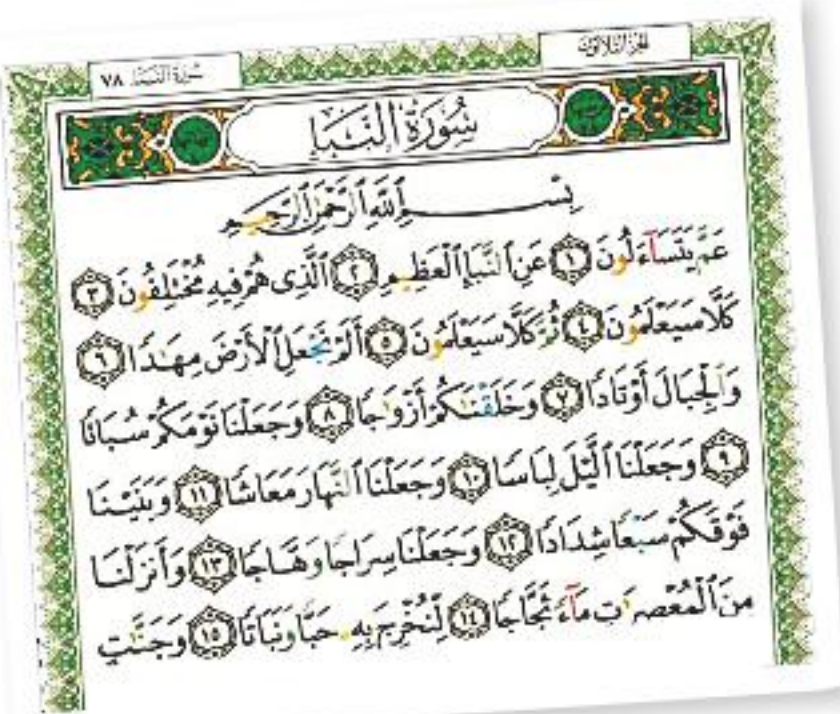 الجزء الثلاثون
سورة النبإ ٧٨
سُورَةُ النَّبَإِ
بِسْمِ ٱللَّهِ ٱلرَّحْمَٰنِ ٱلرَّحِيمِ
عَمَّ يَتَسَآءَلُونَ ١ عَنِ ٱلنَّبَإِ ٱلْعَظِيمِ ٢ ٱلَّذِى هُمْ فِيهِ مُخْتَلِفُونَ ٣
كَلَّا سَيَعْلَمُونَ ٤ ثُمَّ كَلَّا سَيَعْلَمُونَ ٥ أَلَمْ نَجْعَلِ ٱلْأَرْضَ مِهَٰدًا ٦
وَٱلْجِبَالَ أَوْتَادًا ٧ وَخَلَقْنَٰكُمْ أَزْوَٰجًا ٨ وَجَعَلْنَا نَوْمَكُمْ سُبَاتًا
٩ وَجَعَلْنَا ٱلَّيْلَ لِبَاسًا ١٠ وَجَعَلْنَا ٱلنَّهَارَ مَعَاشًا ١١ وَبَنَيْنَا
فَوْقَكُمْ سَبْعًا شِدَادًا ١٢ وَجَعَلْنَا سِرَاجًا وَهَّاجًا ١٣ وَأَنزَلْنَا
مِنَ ٱلْمُعْصِرَٰتِ مَآءً ثَجَّاجًا ١٤ لِّنُخْرِجَ بِهِۦ حَبًّا وَنَبَاتًا ١٥ وَجَنَّٰتٍ